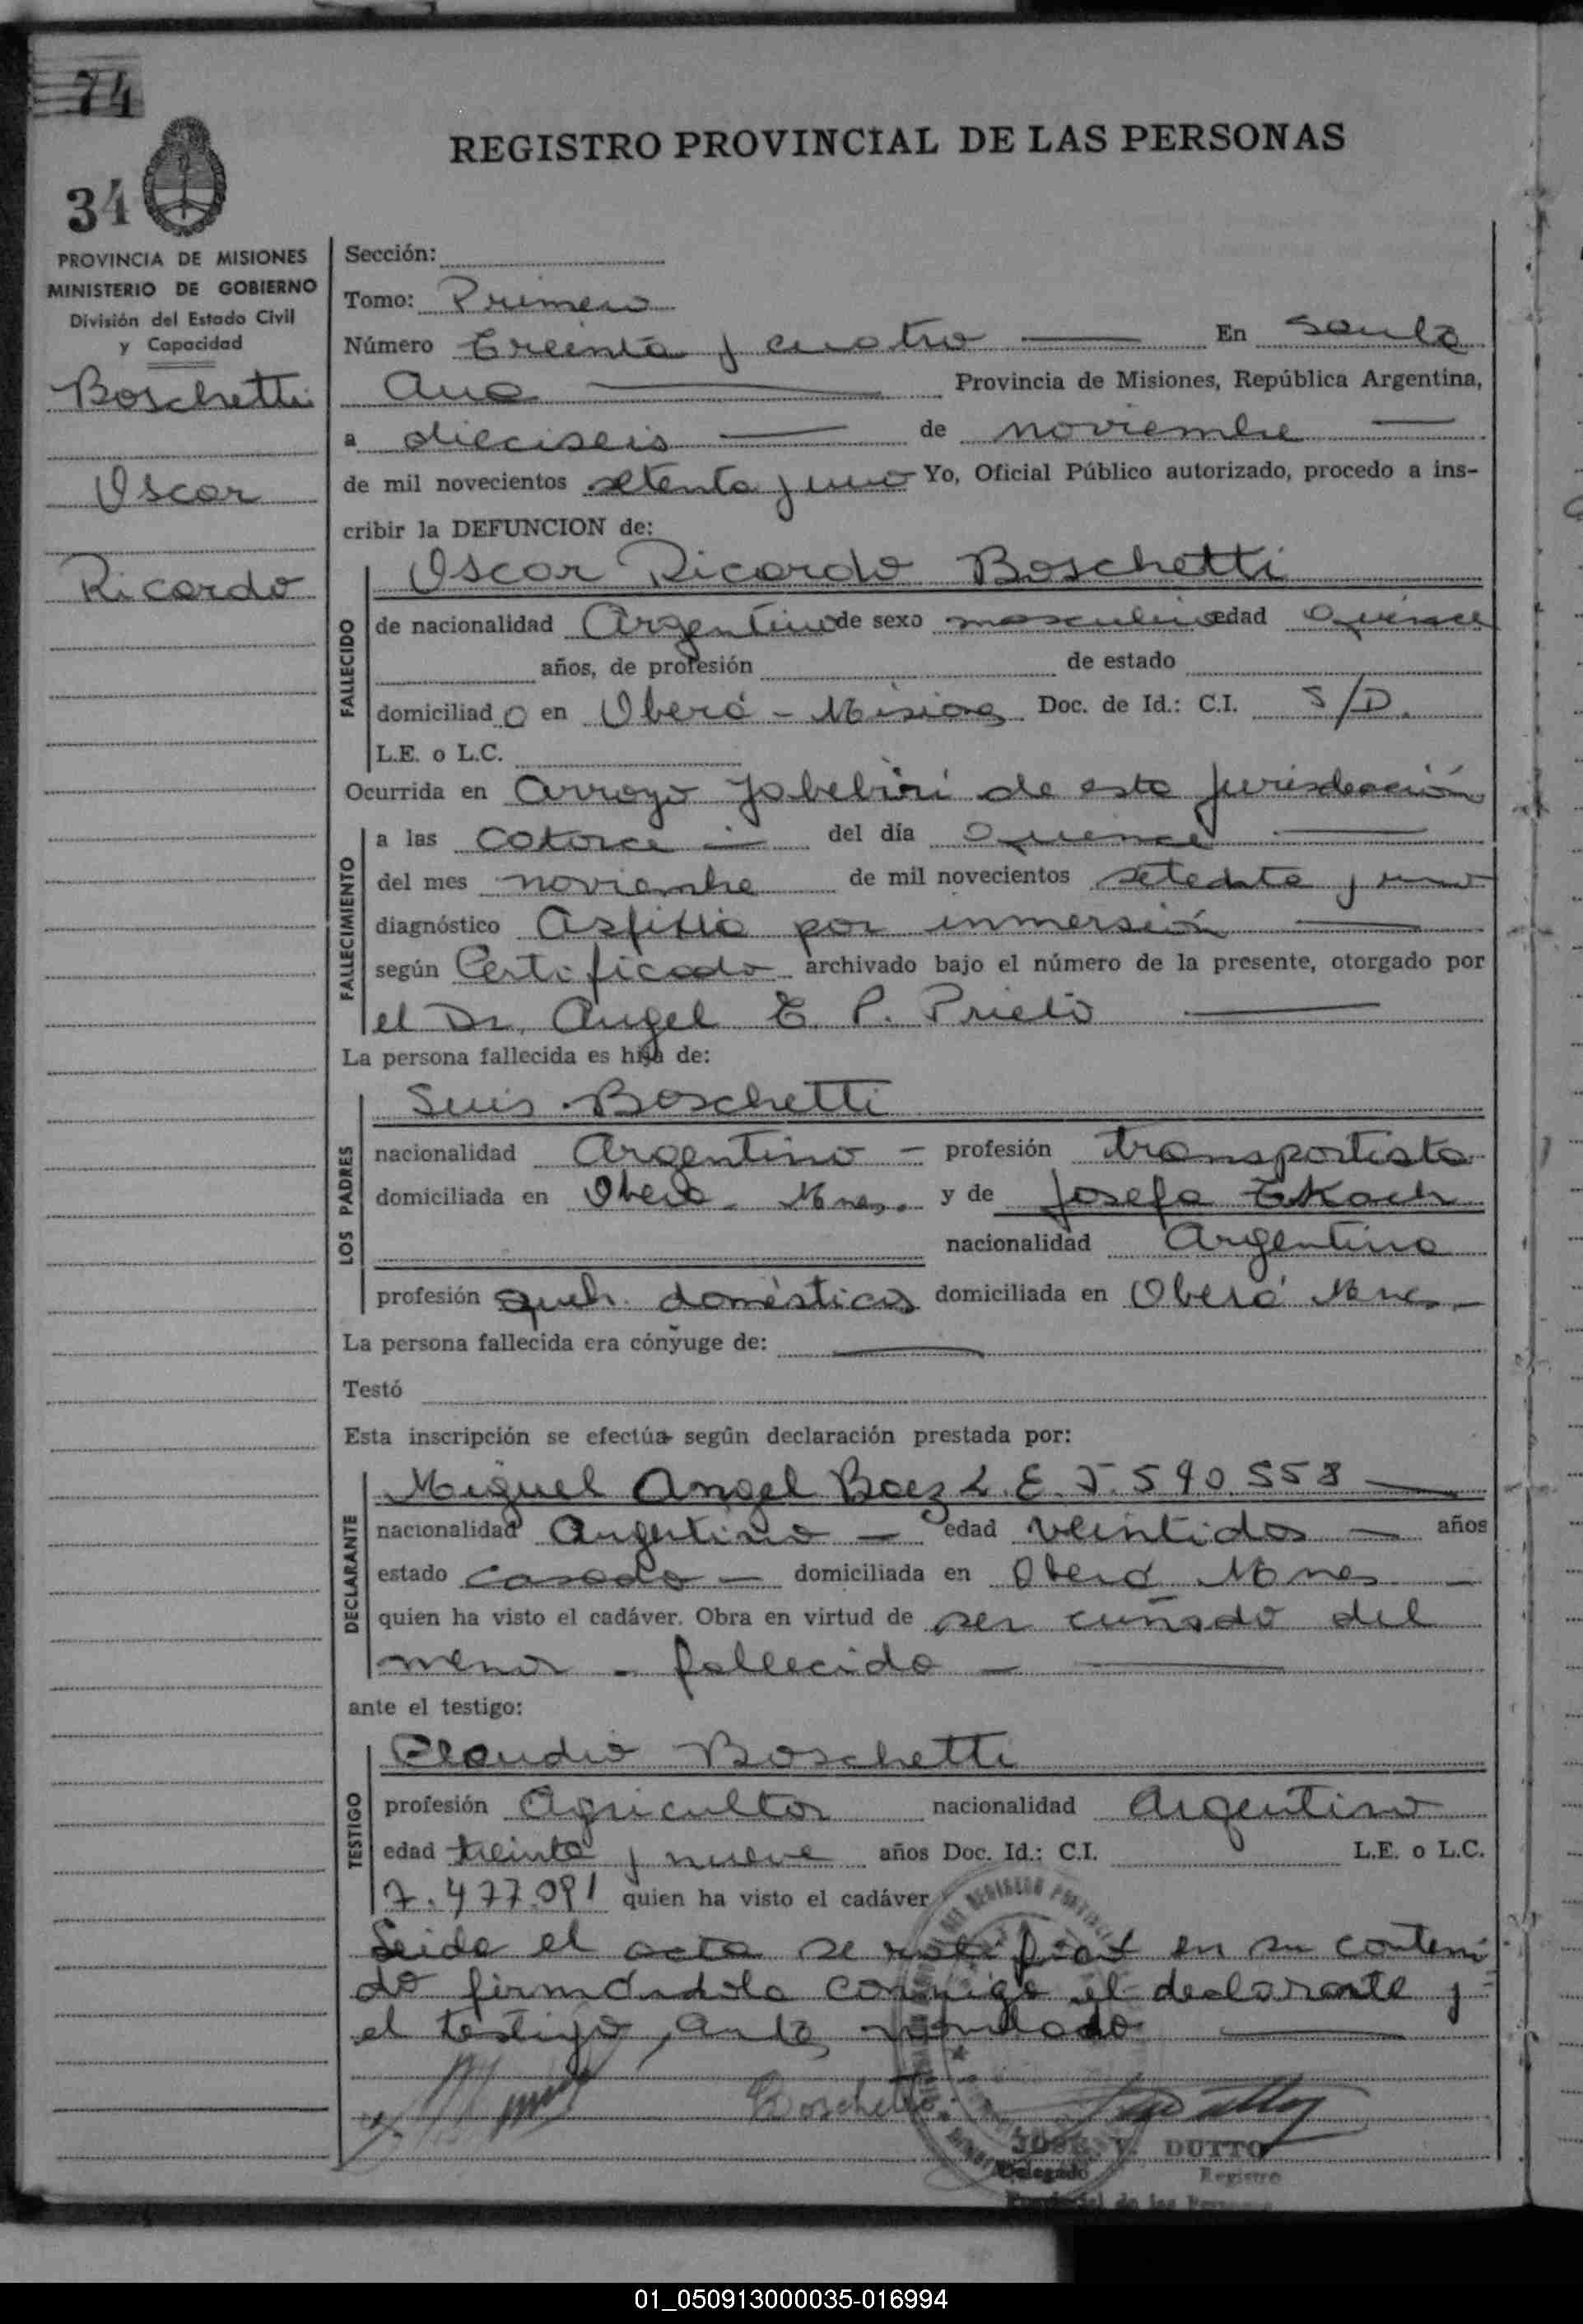 74
34
REGISTRO PROVINCIAL DE LAS PERSONAS
PROVINCIA DE MISIONES
MINISTERIO DE GOBIERNO
División del Estado Civil
y Capacidad
Boschetti
Oscar
Ricardo
Sección:
Tomo: Primero
Número Treinta y cuatro En Santa
Ana Provincia de Misiones, República Argentina,
a dieciseis de noviembre
de mil novecientos setenta y uno Yo, Oficial Público autorizado, procedo a ins-
cribir la DEFUNCION de:
FALLECIDO
Oscar Ricardo Boschetti
de nacionalidad Argentino de sexo masculino edad Quince
años, de profesión de estado
domiciliado en Oberá - Misiones Doc. de Id.: C.I. S/D.
L.E. o L.C.
Ocurrida en Arroyo Yabebirí de esta jurisdicción
FALLECIMIENTO
a las catorce del día Quince
del mes noviembre de mil novecientos setenta y uno
diagnóstico Asfixia por inmersión
según Certificado archivado bajo el número de la presente, otorgado por
el Dr. Angel E. P. Prieto
La persona fallecida es hijo de:
LOS PADRES
Luis Boschetti
nacionalidad Argentino - profesión transportista
domiciliada en Oberá - Mnes. y de Josefa
nacionalidad Argentina
profesión queh. domésticos domiciliada en Oberá Mnes -
La persona fallecida era cónyuge de:
Testó
Esta inscripción se efectúa según declaración prestada por:
DECLARANTE
Miguel Angel Baez L.E. 5.590.558
nacionalidad Argentino - edad veintidos - años
estado casado - domiciliada en Oberá Mnes -
quien ha visto el cadáver. Obra en virtud de ser cuñado del
menor - fallecido -
ante el testigo:
TESTIGO
Claudio Boschetti
profesión Agricultor nacionalidad Argentino
edad treinta y nueve años Doc. Id.: C.I. L.E. o L.C.
7.477.091 quien ha visto el cadáver
Leida el acta se ratifican en su conteni
do firmándola conmigo el declarante y
el testigo, antes nombrado
Boschetti
JOSE V. DUTTO
Delegado Registro
Provincial de las Personas
01_050913000035-016994